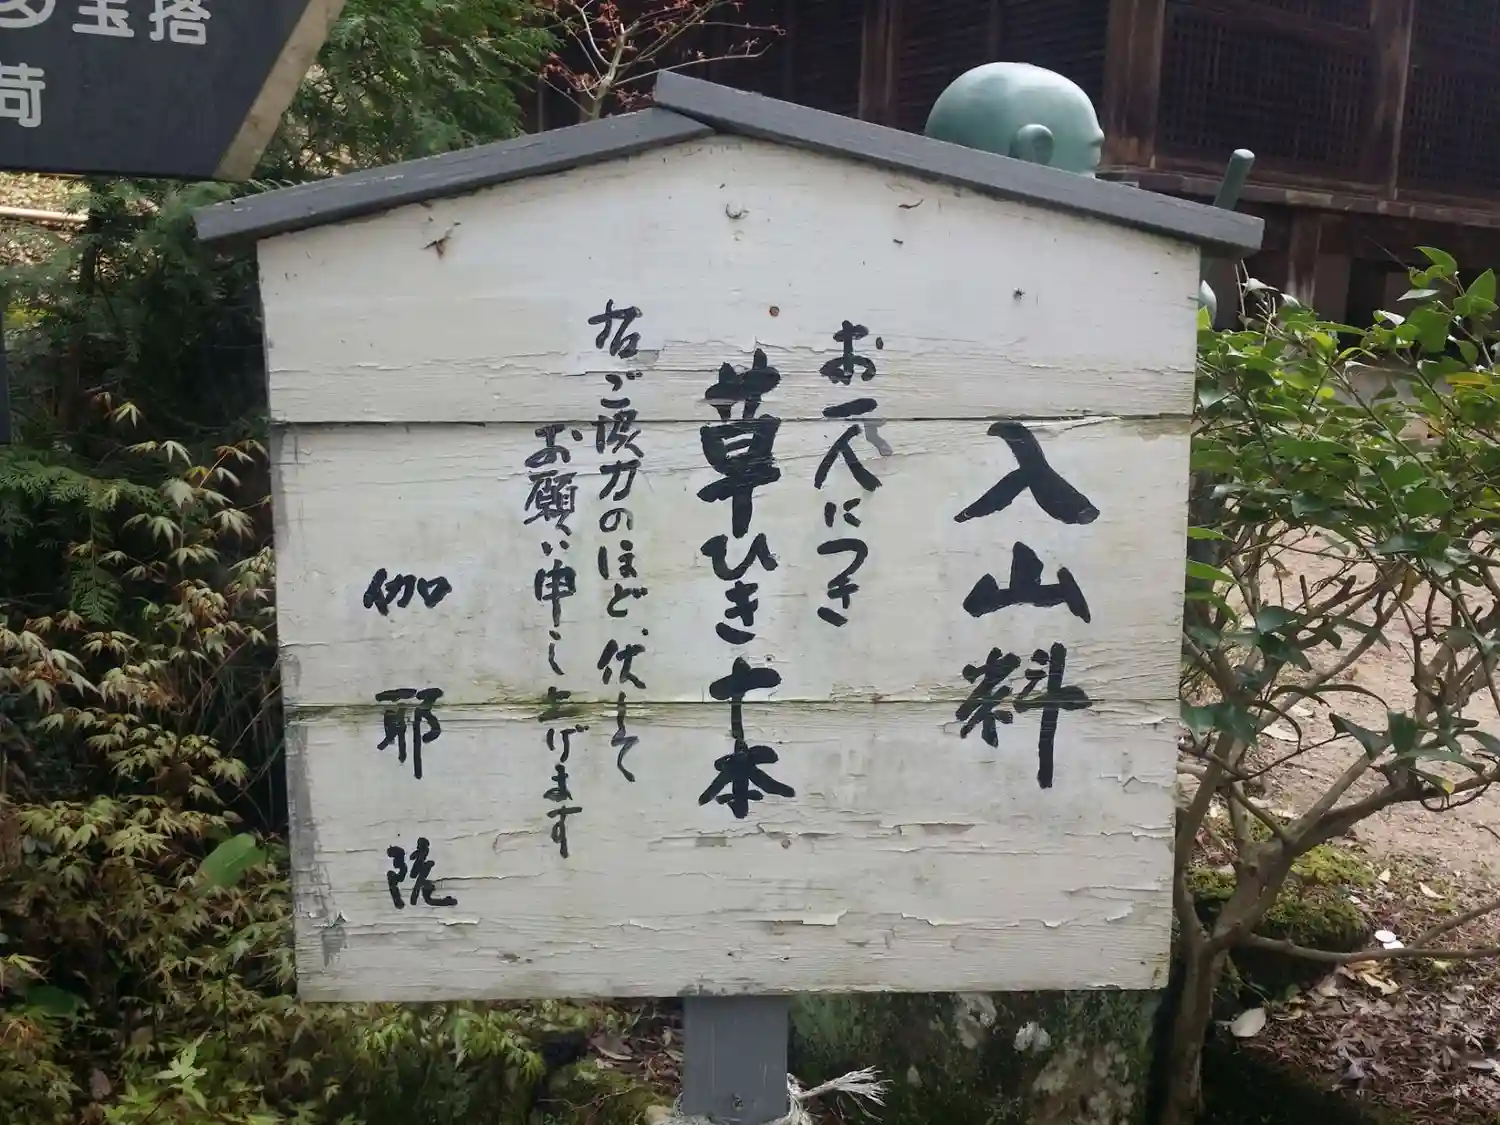 入山料
お一人につき
草ひき十本
右ご協力のほど、伏して
お願い申し上げます
伽耶院
多宝塔
荷